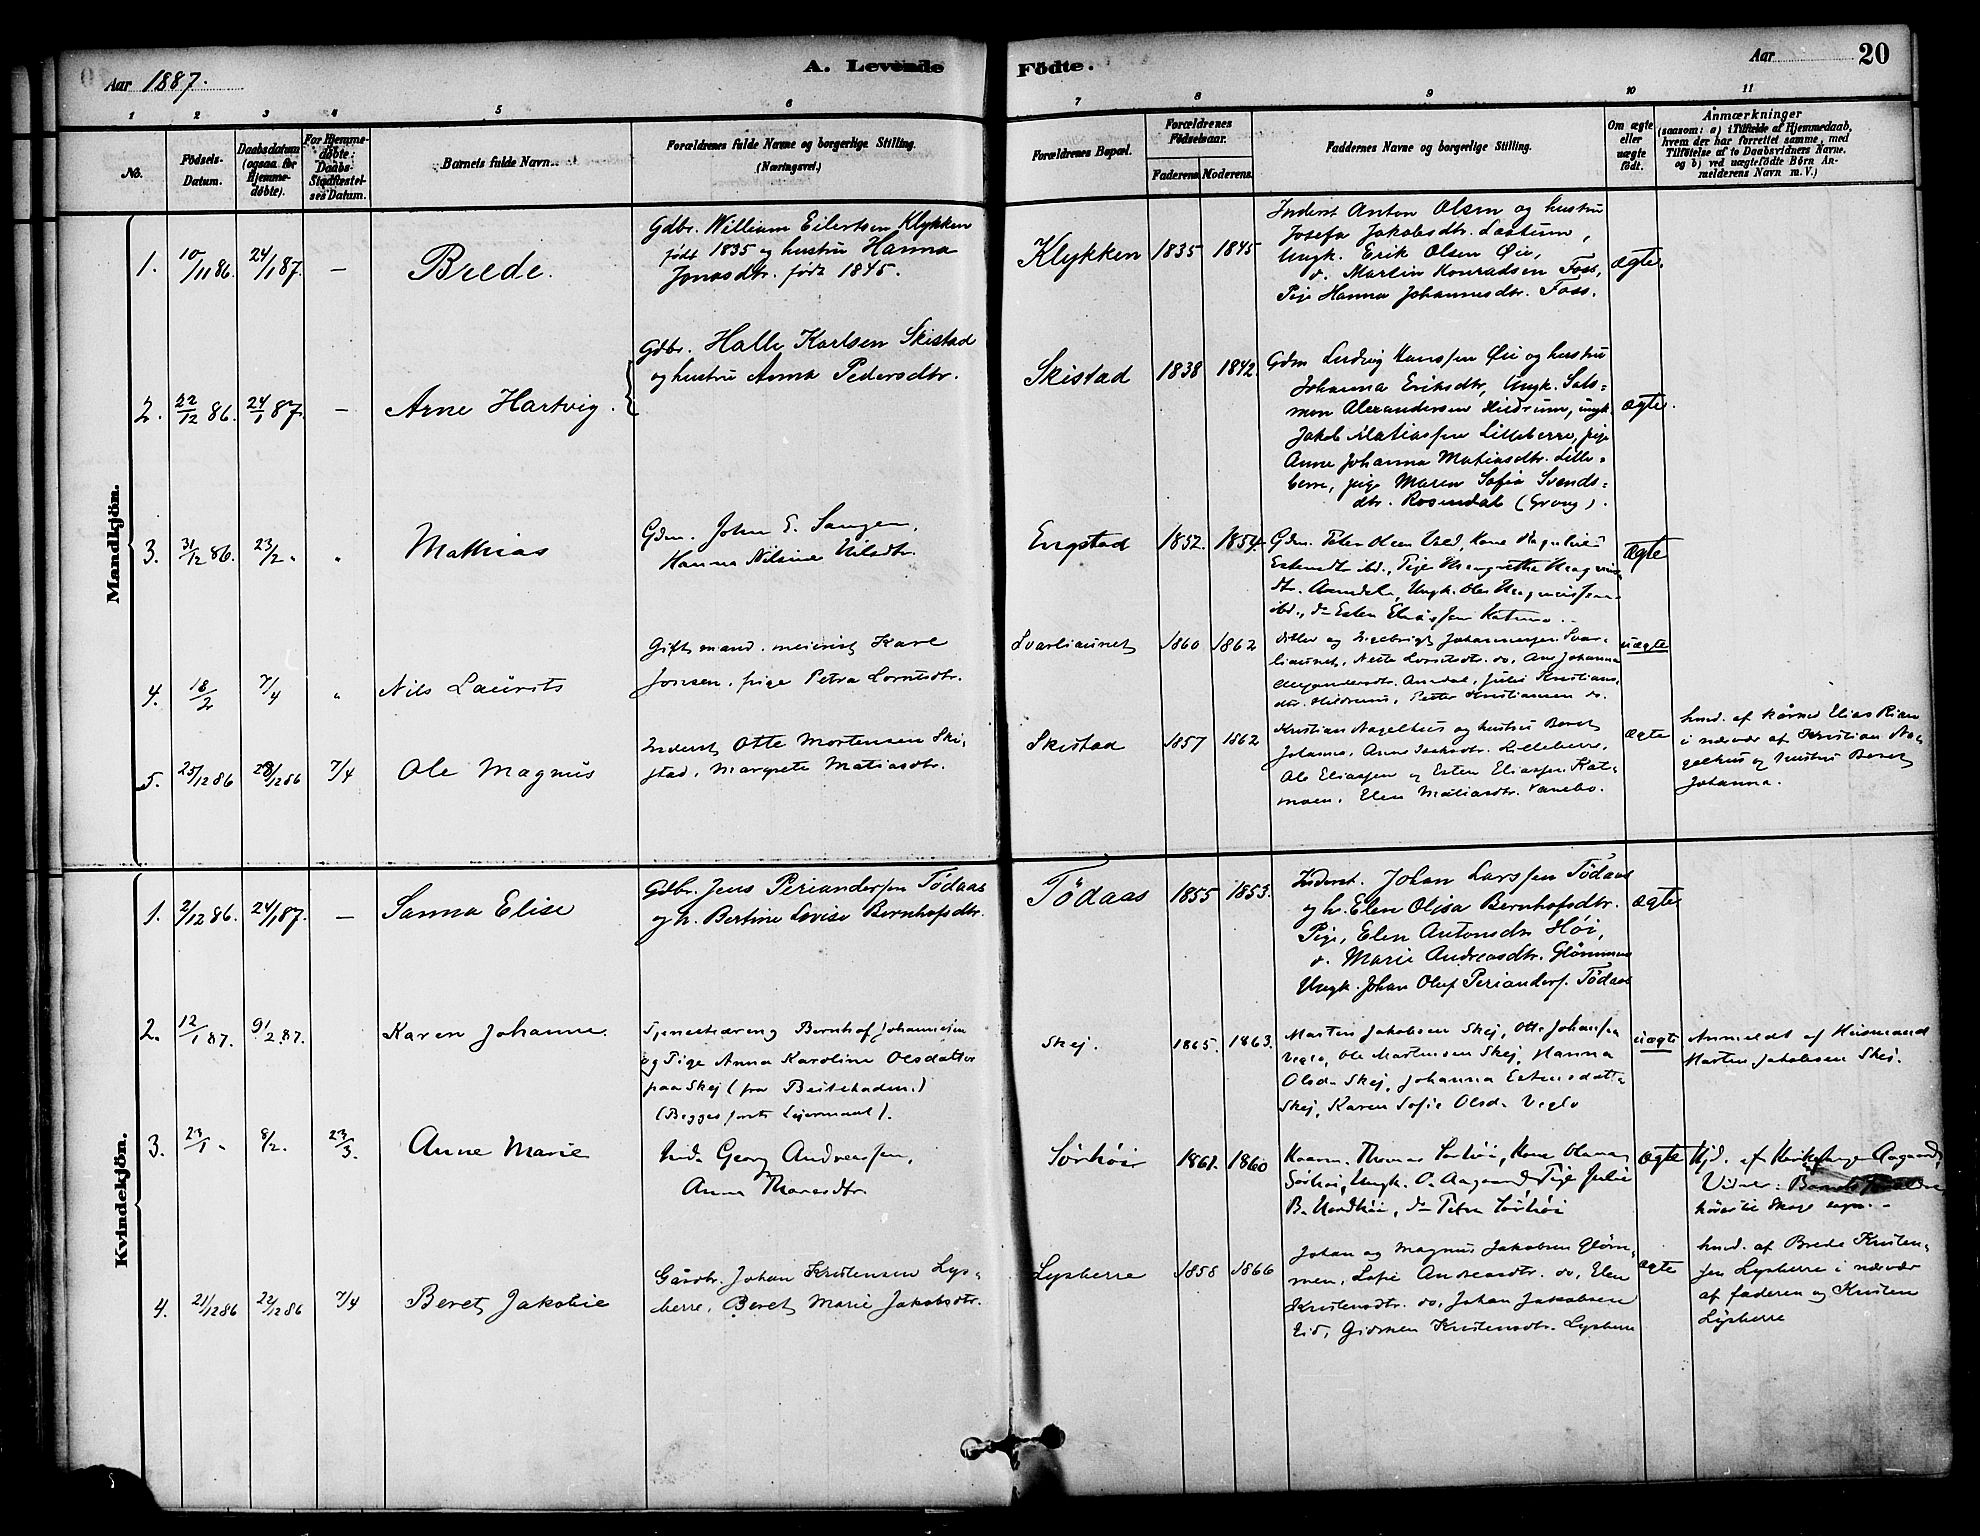 Aar 1887.
A. Levende Födte.
Aar
20
1 2 3 4 5 6 7 8 9 10 11
No.
Födsels-Datum.
Daabsdatum (ogsaa for Hjemmedøbte).
For Hjemmedøbte: Daabs-Stadfæstelses Datum.
Barnets fulde Navn.
Forældrenes fulde Navne og borgerlige Stilling.
(Næringsvei.)
Forældrenes Bopæl.
Forældrenes Fødselsaar.
Faderens. Moderens.
Faddernes Navne og borgerlige Stilling.
Om ægte eller uægte født.
Anmærkninger
(saasom: a) i Tilfælde af Hjemmedaab,
hvem der har forrettet samme, med
Tilføielse af to Daabsvidners Navne,
og b) ved uægtefødte Børn Anmelderens Navn m. V.)
Mandkjön.
1. 10/11 86. 24/1 87. — Brede.
Gdbr. William Eilertsen Klykken
født 1835 og hustru Hanna
Jonasdtr. født 1845.
Klykken 1835 1845
Inderst Anton Olsen og hustru
Josefa Jakobsdtr. Laatum,
Ungk. Erik Olsen Øie,
o. Martin Konradsen Foss,
Pige Hanna Johannesdtr. Foss.
ægte.
2. 22/12 86. 24/1 87. — Arne Hartvig.
Gdbr. Halle Karlsen Skistad
og hustru Anna Pedersdtr.
Skistad 1838 1842.
Gdm Ludvig Hanssen Øie og hustru
Johanna Eriksdtr, Ungk. Salo=
mon Alexandersen Hildrum, ungk.
Jakob Matiassen Lilleberre, pige
Anne Johanna Matiasdtr. Lille=
berre, pige Maren Sofia Svends=
dtr. Rosendal (Grong).
ægte.
3. 31/12 86. 23/2 " " Mathias
Gdm. John E. Saugen,
Hanna Nilsine Nilsdtr.
Engstad 1852. 1854.
Gdm. Peter Olsen
Estensdtr ibd., Pige
dtr. Amdal, Ungk. Ole
ibd., do Esten Eliassen Katmo.
Ægte
4. 18/2 7/4 " Nils Laurits
Gift mand. meierist Karl
Jonsen, pige Petra Lorntsdtr.
Svarliaunet 1860 1862
Ditlev og Ingebrigt Johannessen Svar-
liaunet, Lorntsdtr. do, Ane Johanna
Alexandersdtr. Amdal, Julie Kristians
dtr. Hildrum, Peter Kristiansen do.
uægte
5. 25/12 86 28/12 86 7/4 Ole Magnus
Inderst Otte Mortensen Ski-
stad, Margrete Matiasdtr.
Skistad 1857 1862
Kristian Nagelhus og hustru Beret
Johanna, Anne Lilleberre,
Ole Eliassen og Esten Eliassen Kat-
moen, Elen Matiasdtr. Vanebo.
ægte
hmd. af kårmd Elias Rian
i nærvær af Kristian Na-
gelhus og hustru Beret
Johanna.
Kvindekjön.
1. 2/12 86. 24/1 87. — Sanna Elise
Gdbr. Jens Perianderssen Tödaas
og h. Bertine Lovise Bernhofsdtr.
Tödaas 1855 1853.
Inderst. Johan Larssen Tödaas
og h. Elen Olisa Bernhofsdtr.
Pige, Elen Antonsdtr Höi,
o. Marie Andreasdtr. Glömmen
Ungk. Johan Oluf Perianders. Tödaas
ægte
2. 12/1 87. 9/2 87. Karen Johanne.
Tjenestedreng Bernhof Johannesen
og Pige Anna Karoline Olsdatter
paa Skej (fra Beitstaden.)
(Begges første Lejermaal).
Skej. 1865. 1863.
Marten Jakobsen Skej, Otte Johansen
Veglo, Ole Martensen Skej, Hanna
Olsd. Skej, Johanna Estensdatter
Skej, Karen Sofie Olsd. Veglo
uægte
Anmeldt af Husmand
Marten Jakobsen Skej.
3. 23/1 " 8/2. 23/3. Anne Marie
Inds. Georg Andreassen,
Anna Thomasdtr.
Sörhöi 1861. 1860
Kaarm. Thomas Sörhöi, Kone Olama
Sörhöi, Ungk. O. Aagaard, Pige Julie
B. Nordhöi, do Petra Sörhöi
ægte
Hjd. af Kirkesanger Aagaard,
Vidner.
hører til Skage sogn.
4. 21/12 86 22/12 86 7/4 Beret Jakobie
Gårdbr. Johan Kristensen Lys-
berre, Beret Marie Jakobsdtr.
Lysberre 1858 1866
Johan og Magnus Jakobsen Glöm-
men, Sofie Andreasdtr. do, Elen
Kristensdtr. do, Johan Jakobsen
Eid, Gidmen Kristensdtr. Lysberre
ægte
hmd. af Brede Kristen-
sen Lysberre i nærvær
af faderen og Kristen
Lysberre